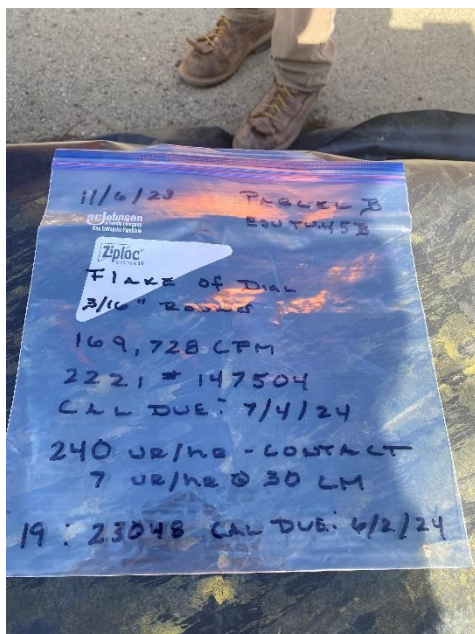 11/6/23 PARCEL B
scJohnson
A Family Company
EQUT.45B
Ziploc
FLAKE OF DIAL
3/16" ROUND
169,728 CPM
2221 # 147504
CAL DUE: 7/4/24
240 uR/HR - CONTACT
7 uR/HR @ 30 CM
19 : 23048 CAL DUE: 6/2/24